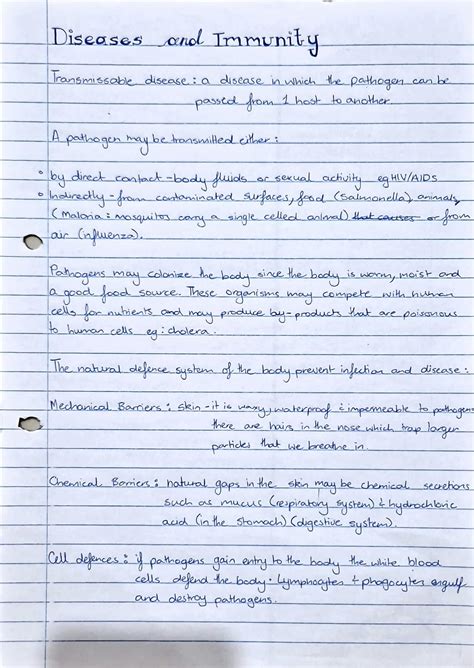 Diseases and Immunity
Transmissable disease : a disease in which the pathogen can be
passed from 1 host to another.
A pathogen may be transmitted either :
• by direct contact - body fluids or sexual activity eg HIV/AIDS
• Indirectly - from contaminated surfaces, food (Salmonella), animals,
(Malaria : mosquitos carry a single celled animal) that causes or from
air (influenza).
Pathogens may colonize the body since the body is warm, moist and
a good food source. These organisms may compete with human
cells for nutrients and may produce by-products that are poisonous
to human cells eg: cholera.
The natural defence system of the body prevent infection and disease :
Mechanical Barriers : skin - it is waxy, waterproof & impermeable to pathogens
there are hairs in the nose which trap larger
particles that we breathe in.
Chemical Barriers : natural gaps in the skin may be chemical secretions
such as mucus (respiratory system) & hydrochloric
acid (in the stomach) (digestive system).
Cell defences : if pathogens gain entry to the body the white blood
cells defend the body. Lymphocytes & phagocytes engulf
and destroy pathogens.